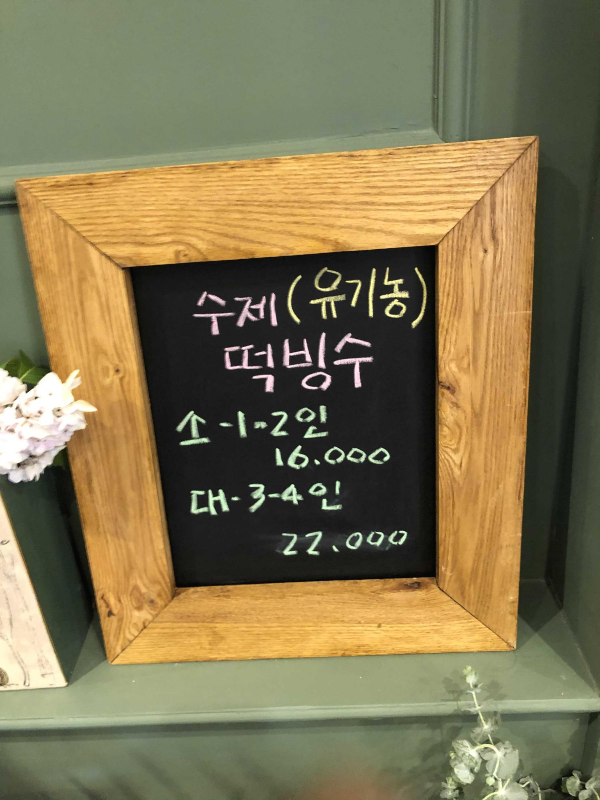 수제(유기농)
떡빙수
소-1-2인
16.000
대-3-4인
22.000